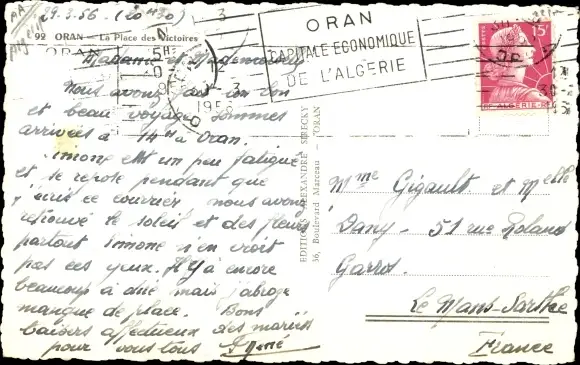 29.3.56 (20H30)
92 ORAN — La Place des Victoires
ORAN
ORAN
CAPITALE ECONOMIQUE
DE L'ALGERIE
15F
Madame et Mademoiselle
Nous avons fait un bon
et beau voyage sommes
arrivées à 14H à Oran.
Simone est un peu fatiguée
et se repose pendant que
j'écris ce courrier nous avons
retrouvé le soleil et des fleurs
partout Simone n'en croit
pas ces yeux. Il y à encore
beaucoup à dire mais j'abrège
manque de place. Bons
baisers affectueux des mariés
pour vous tous
EDITIONS ALEXANDRE SIRECKY
36, Boulevard Marceau - ORAN
Mme Gigault et Melle
Dany - 51 rue Roland
Garros.
Le Mans-Sarthe
France